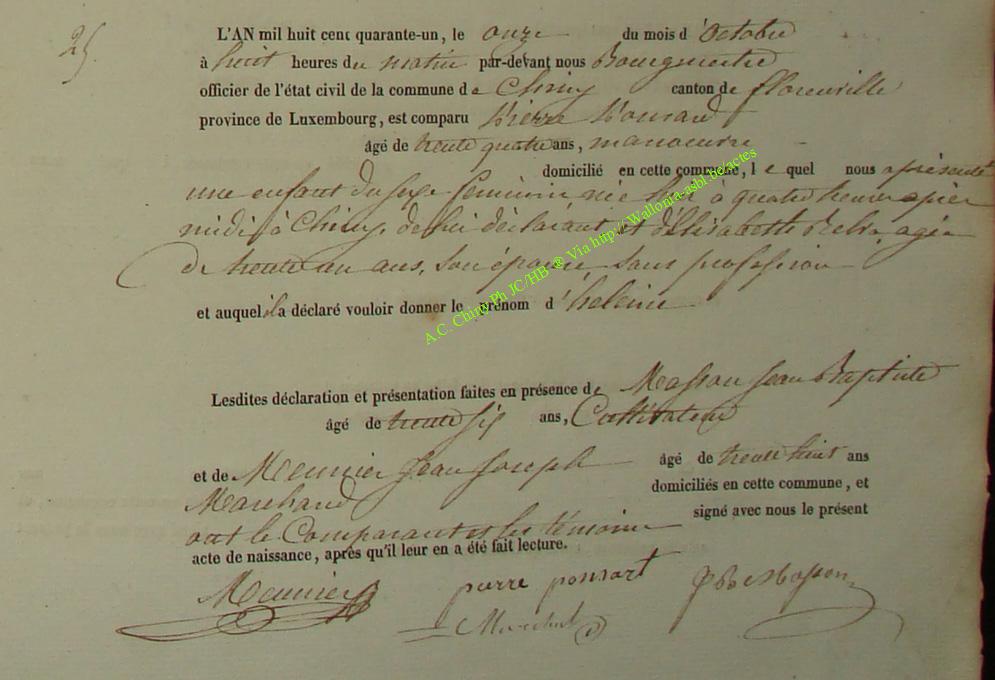 25.
L'AN mil huit cent quarante-un, le onze du mois d'Octobre
à huit heures du matin par-devant nous Bourgmestre
officier de l'état civil de la commune de Chiny canton de florenville
province de Luxembourg, est comparu Pierre Ponsard
âgé de trente quatre ans, manoeuvre
domicilié en cette commune, le quel nous a présenté
une enfant du sexe féminin, née hier à quatre heures après
midi à Chiny, de lui déclarant et d'Elisabette agée
de trente un ans, son épouse, sans profession
et auquel il a déclaré vouloir donner le prénom d'heleine
Lesdites déclaration et présentation faites en présence de Masson Jean Baptiste
âgé de trente six ans, Cultivateur
et de Meunier Jean Joseph âgé de trente huit ans
Marchand domiciliés en cette commune, et
ont le Comparant et les témoins signé avec nous le présent
acte de naissance, après qu'il leur en a été fait lecture.
Meunier pierre ponsart JB Masson
A.C. Chiny Ph JC/HB ® Via http://Wallonia-asbl.be/actes